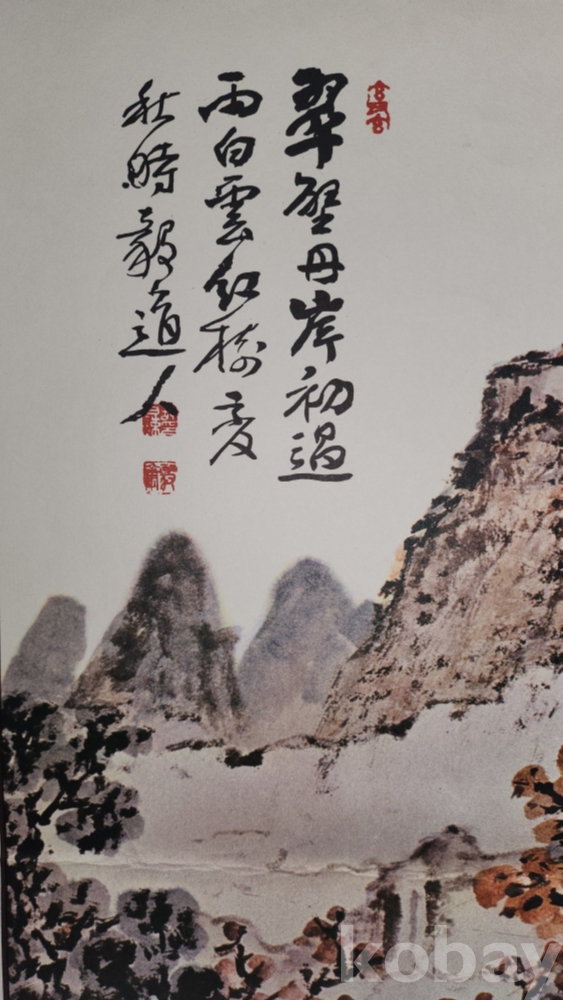 翠壁丹岸初過
雨白雲紅樹夏
秋時毅道人
kobay